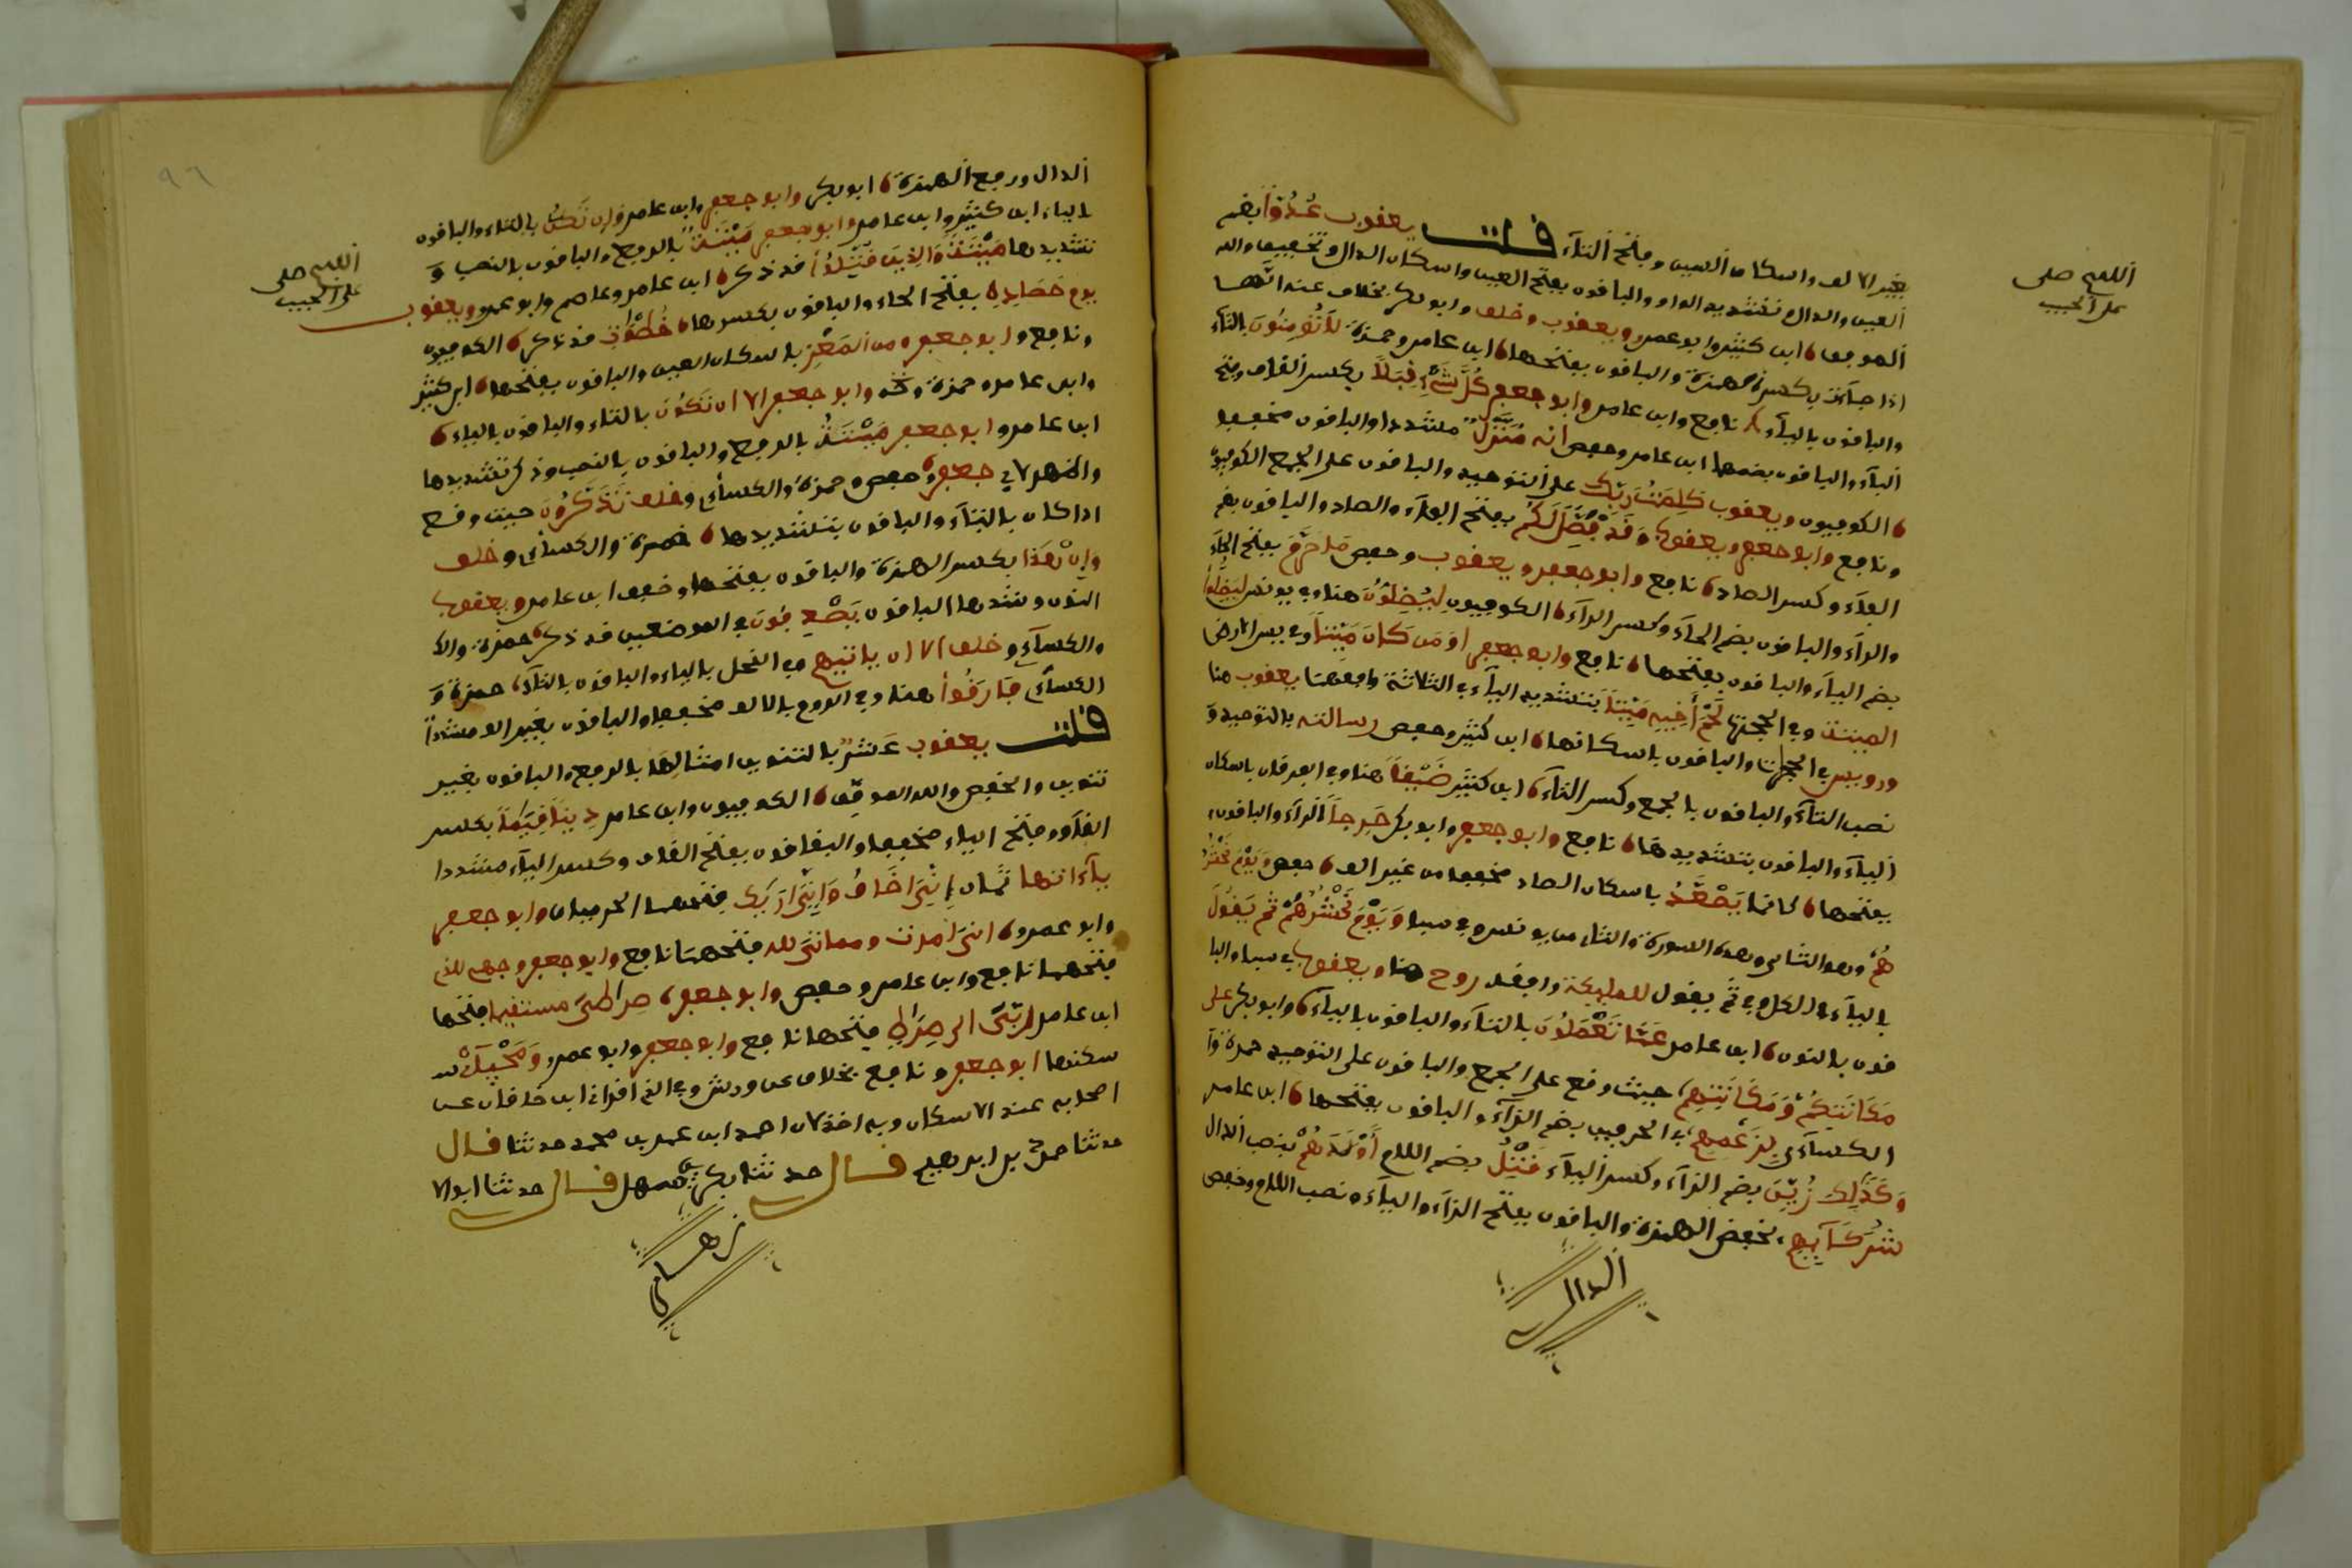 بغير الف واسكان السين وفتح التآء قلت يعقوب عُدُوّاً بضم
العين والدال وتشديد الواو والباقون بفتح العين واسكان الدال وتخفيف والله
الموفق، ابن كثير وابو عمرو ويعقوب وخلف وابو بكر بخلاف عنه انَّهــا
اذا جآءت بكسر الهمزة والباقون بفتحها، ابن عامر وحمزة لَا تُؤمِنُونَ بالتآء
والباقون باليآء، نافع وابن عامر وابو جعفر كُلَّ شَيْءٍ قِبَلاً بكسر القاف وفتح
البآء والباقون بضمها ابن عامر وحفص انه مُنَزَّلٌ مشددا والباقون مخففا
، الكوفيون ويعقوب كَلِمَتُ رَبِّكَ على التوحيد والباقون على الجمع الكوفيون
ونافع وابو جعفر ويعقوب وَقَدْ فَصَّلَ لَكُمْ بفتح الفآء والصاد والباقون بضم
الفآء وكسر الصاد، نافع وابو جعفر ويعقوب وحفص مَا حَرَّمَ بفتح الحآء
والرآء والباقون بضم الحآء وكسر الرآء، الكوفيون لَيُضِلُّونَ هنا وفي يونس لِيُضِلُّوا
بضم اليآء والباقون بفتحها، نافع وابو جعفر اَوَ مَن كَانَ مَيِّتاً وفي يس الارض
الميتة وفي الحجرات لَحْمَ أَخِيهِ مَيِّتاً بتشديد اليآء في الثلاثة وافقهما يعقوب هنا
ورويس في الحجرات والباقون باسكانها، ابن كثير وحفص رسالته بالتوحيد وَ
نصب التآء والباقون بالجمع وكسر التآء، ابن كثير ضَيْقاً هنا وفي الفرقان باسكان
اليآء والباقون بتشديدها، نافع وابو جعفر وابو بكر حَرِجاً الرآء والباقون،
بفتحها، كانما يَصْعَدُ باسكان الصاد مخففا من غير الف، حفص وَيَوْمَ نَحْشُرُ
هُمْ وهو الثاني من هذه السورة والثاني من يونس وفي سبا وَيَوْمَ نَحْشُرُهُمْ ثم يَقُولُ
باليآء في الكل وفي ثم يقول للملئكة وافقه روح هنا ويعقوب في سبا والبا
قون بالنون، ابن عامر عَمَّا تَعْمَلُونَ بالتآء والباقون باليآء، وابو بكر على
مَكَانَتِكُمْ وَمَكَانَتِهِمْ حيث وقع على الجمع والباقون على التوحيد حمزة وَا
الكسآءي بِزُعْمِهِمْ في الحرفين بضم الزآء والباقون بفتحها، ابن عامر
وَكَذَلِكَ زُيِّنَ بضم الزآء وكسر اليآء قَتْلُ بضم اللام أَوْلَدَهُمْ بنصب الدال
شُرَكَآئِهِمْ بخفض الهمزة والباقون بفتح الزآء واليآء ونصب اللام وخفض
الدال
اللهم صلى
على الحبيب
الدال ورفع الهمزة، ابو بكر وابو جعفر وابن عامر وَإن تَكُنْ بالتاء والباقون
بالياء ابن كثير وابن عامر وابو جعفر مَيْتَةٌ بالرفع والباقون بالنصب وَ
تشديدها مَيْتَةً وَالذِينَ قَتَّلُواْ قد ذكر، ابن عامر وعاصم وابو عمرو ويعقوب
يوم حَصَادِهِ بفتح الحاء والباقون بكسرها، خُطُوَٰتِ قد ذكر، الكوفيون
ونافع وابو جعفر ومن المَعْزِ باسكان العين والباقون بفتحها، ابن كثير
وابن عامر وحمزة وابو جعفر الا ان تَكُونَ بالتاء والباقون بالياء،
ابن عامر وابو جعفر مَيْتَةٌ بالرفع والباقون بالنصب وذكر تشديدها
لابي جعفر، حفص وحمزة والكسآءي وخلف تَذَكَّرُونَ حيث وقع
اذا كان بالتآء والباقون بتشديدها، حمزة والكسآءي وخلف
وَإِنَّ هَذَا بكسر الهمزة والباقون بفتحها وخفف ابن عامر ويعقوب
النون وشددها الباقون يَصْدِفُونَ في الموضعين قد ذكر، حمزة وال
والكسآءي وخلف الا ان ياتيهم وفي النحل بالياء والباقون بالتآء، حمزة وَ
الكسآءي فَارَقُواْ هنا وفي الروم بالالف مخففا والباقون بغير الف مشدداً
قلت يعقوب عَشْرٌ بالتنوين امثالُها بالرفع والباقون بغير
تنوين والخفض والله الموفق، الكوفيون وابن عامر دِيناً قِيَماً بكسر
القاف وفتح الياء مخففا والباقون بفتح القاف وكسر اليآء مشددا
يآءاتها ثمان إِنِّيَ اَخَافُ وَإِنِّيَ أَرَىكَ فتحهما الحرميان وابو جعفر
وابو عمرو، انيَ امرت ومماتيَ لله فتحهما نافع وابو جعفر وجهي للذي
فتحهما نافع وابن عامر وحفص وابو جعفر، صراطيَ مستقيما فتحها
ابن عامر رَبِّيَ الى صِرَاطٍ فتحها نافع وابو جعفر وابو عمرو وَمَحْيَآيْ
سكنها ابو جعفر ونافع بخلاف عن ورش وفي الذي اقراني ابن خاقان عن
اصحابه عنه الاسكان وبه اخذ لان احمد ابن عمر بن محمد حدثنا قال
حدثنا احمد بن ابراهيم قال حدثنا بكر بن سهل قال حدثنا ابو الا
زهــر
اللهم صلى
على الحبيب
٩٦